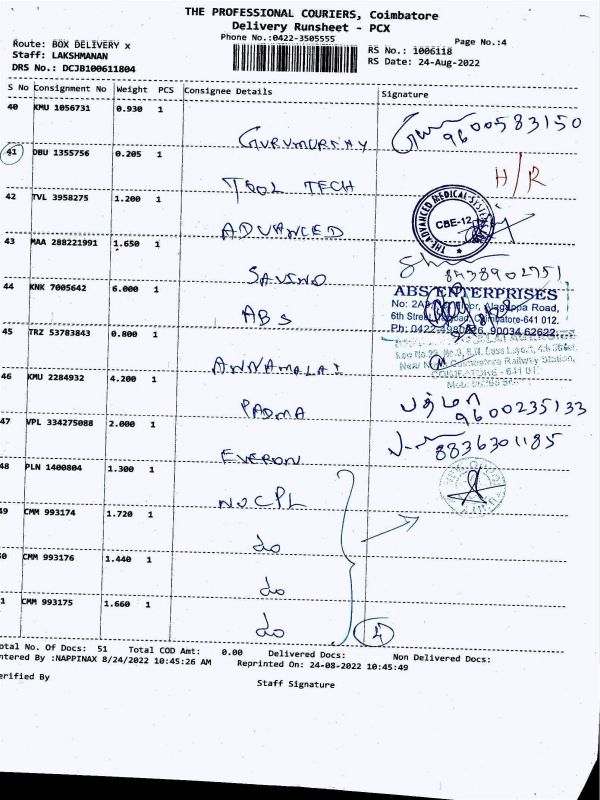 THE PROFESSIONAL COURIERS, Coimbatore
Delivery Runsheet - PCX
Phone No.:0422-3505555
Page No.:4
Route: BOX DELIVERY x
RS No.: 1006118
Staff: LAKSHMANAN
RS Date: 24-Aug-2022
DRS No.: DCJB100611804
S No Consignment No Weight PCS Consignee Details Signature
40 KMU 1056731 0.930 1
GURUMURTHY 9600583150
41 DBU 1355756 0.205 1
TOOL TECH H/R
42 TVL 3958275 1.200 1
ADVANCED THE ADVANCED MEDICAL SYSTEMS CBE-12
43 MAA 288221991 1.650 1
SAVINO 8738902751
44 KNK 7005642 6.000 1
ABS ABS ENTERPRISES
Nagappa Road,
6th Street Coimbatore-641 012.
Ph: 0422 90034 62622
45 TRZ 53783843 0.800 1
ANNAMALAI
Coimbatore Railway Station,
COIMBATORE - 641
46 KMU 2284932 4.200 1
PADMA பத்மா
9600235133
47 VPL 334275088 2.000 1
EVERON 8836301185
48 PLN 1400804 1.300 1
NO CPL
49 CMM 993174 1.720 1
do
0 CMM 993176 1.440 1
do
1 CMM 993175 1.660 1
do 4
otal No. Of Docs: 51 Total COD Amt: 0.00 Delivered Docs: Non Delivered Docs:
ntered By :NAPPINAX 8/24/2022 10:45:26 AM Reprinted On: 24-08-2022 10:45:49
erified By
Staff Signature